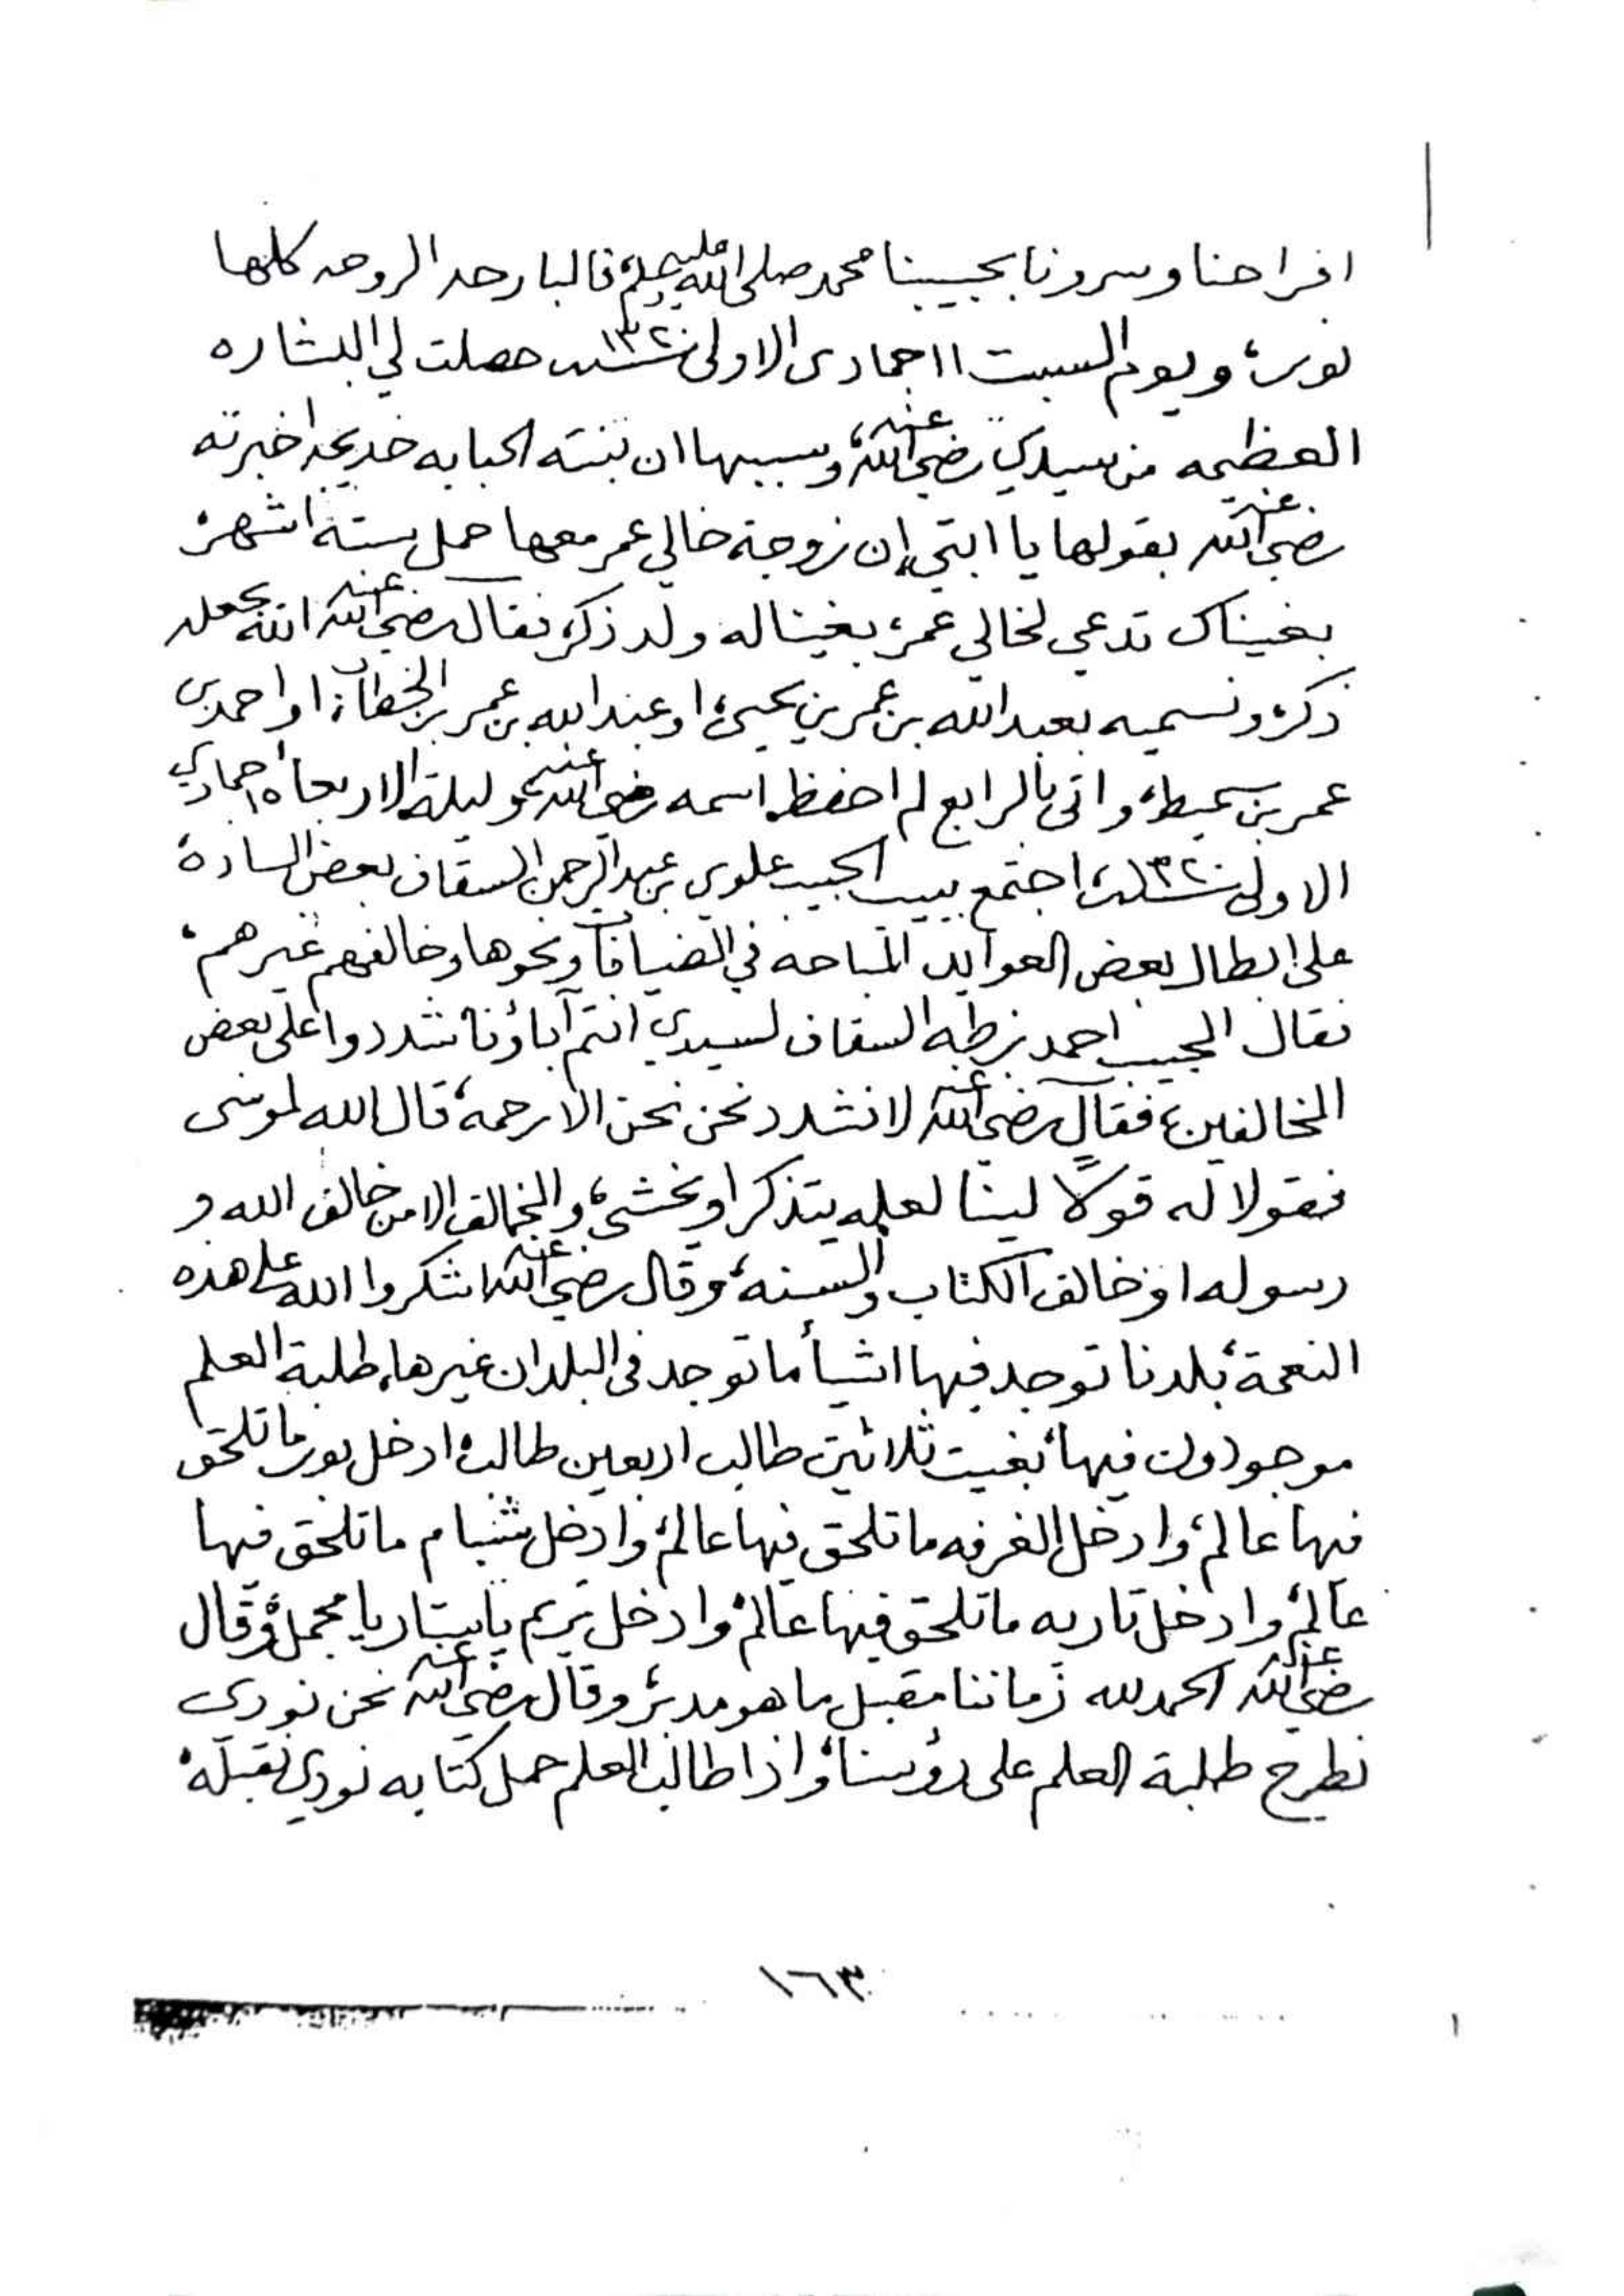 افراحنا وسرورنا بحبيبنا محمد صلى الله عليه وسلم، فالبارحه الروحه كلها
نور، ويوم السبت ١١ جمادى الاولى سنة ١٣٢٠ حصلت لي البشاره
العظيمه من سيدي رضي الله عنه، وسببها ان بنته الحبابه خديجه اخبرته
رضي الله عنه بقولها يا ابتي إن زوجة خالي عمر معها حمل ستة اشهر
بغيناك تدعي لخالي عمر، بغيناله ولد ذكر، فقال رضي الله عنه الله يجعله
ذكر، ونسميه بعبد الله بن عمر بن يحيى، او عبد الله بن عمر بن الخطاب، او احمد بن
عمر بن سميط، واتى بالرابع لم احفظ اسمه رضي الله عنه، وليلة الاربعاء ١٥ جمادي
الاولى سنة ١٣٢٠ اجتمع ببيت الحبيب علوي بن عبد الرحمن السقاف بعض السادة
على ابطال بعض العوايد المباحه في الضيافات ونحوها وخالفهم غيرهم،
فقال الحبيب احمد بن طه السقاف لسيدي انتم آباؤنا شددوا على بعض
المخالفين، فقال رضي الله عنه لا نشدد نحن نحن الا رحمة، قال الله لموسى
فقولا له قولاً لينا لعله يتذكر او يخشى، والمخالف الا من خالف الله و
رسوله او خالف الكتاب والسنه، وقال رضي الله عنه اشكروا الله على هذه
النعمة، بلدنا توجد فيها اشيأ ما توجد في البلدان غيرها، طلبة العلم
موجودون فيها، بغيت ثلاثين طالب اربعين طالب، ادخل بور ما تلحق
فيها عالم، وادخل الغرفه ما تلحق فيها عالم، وادخل شبام ما تلحق فيها
عالم، وادخل تاربه ما تلحق فيها عالم، وادخل تريم يا بيتار يا مجمل، وقال
رضي الله عنه الحمد لله زماننا مقبل ما هو مدبر، وقال رضي الله عنه نحن نودي
نطرح طلبة العلم على رؤسنا، واذا طالب العلم حمل كتابه نودي نقبّله،
١٦٣